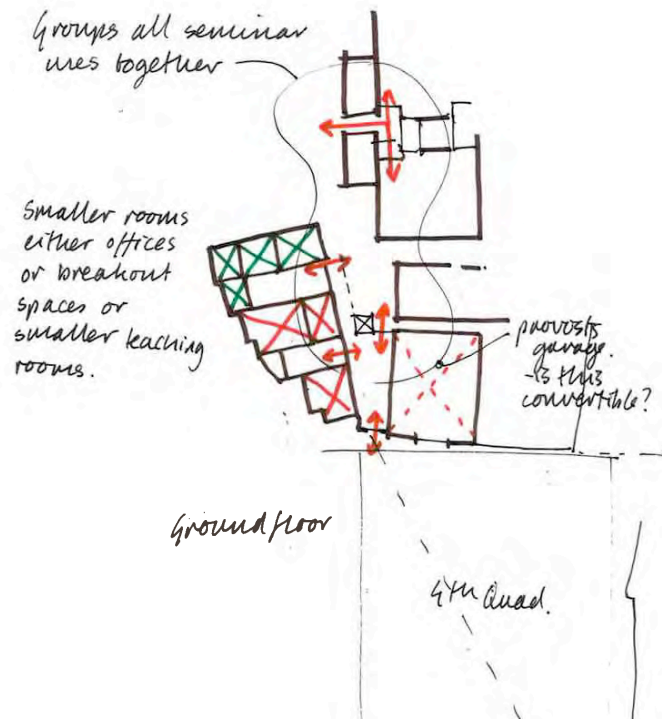 Groups all seminar
uses together
Smaller rooms
either offices
or breakout
spaces or
smaller teaching
rooms.
provosts
garage.
-is this
convertible?
Ground floor
4th Quad.